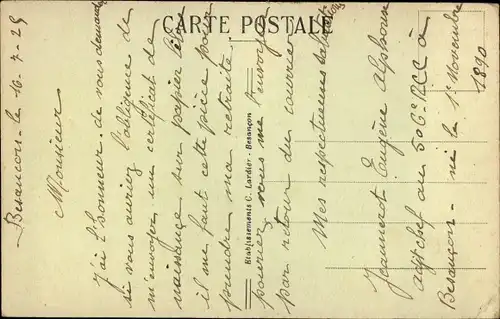 CARTE POSTALE
Etablissements C. Lardier - Besançon
Besançon - le 16-7-25
Monsieur
J'ai l'honneur de vous demander
si vous auriez l'obligence de
m'envoyer un certificat de
naissance sur papier libre
il me faut cette pièce pour
prendre ma retraite
pourriez vous me l'envoyer
par retour du courrier
Mes respectueuses salutations
Jeannerot Eugène Alphonse
adjt chef au 506e RCC à
Besançon - né le 1er Novembre
1890